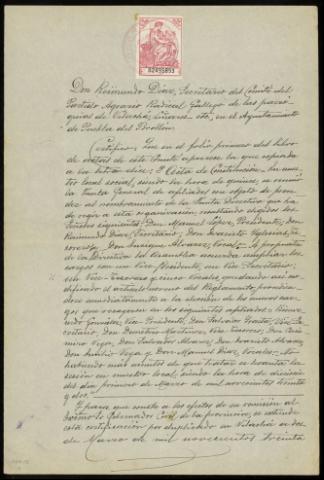 Don Raimundo Diaz, Secretario del Comité del
Partido Agrario Radical Gallego de las parro-
quias de Vilachá, Liñares, etc, en el Ayuntamiento
de Puebla del Brollón.
Certifico: Que en el folio primero del libro
de actas de este Comité aparece la que copiada
a la letra dice: "Acta de Constitución. En nues-
tro local social, siendo las horas de quince, se reunió
la Junta General de afiliados con objeto de proce-
der al nombramiento de la Junta Directiva que ha
de regir a esta organización resultando elegidos los
señores siguientes: Don Manuel López, Presidente; Don
Raimundo Diaz, Secretario; Don Evaristo Iglesias, Te-
sorero; Don Enrique Alvarez, Vocal = A propuesta
de la Directiva la Asamblea acuerda ampliar los
cargos con un Vice-Presidente, un Vice-Secretario,
un Vice-Tesorero y cinco Vocales, quedando así mo-
dificado el artículo noveno del Reglamento, procedién-
dose inmediatamente a la elección de los nuevos car-
gos que recayeron en los siguientes afiliados:
González, Vice-Presidente; Don Salvador Vice-Se-
cretario; Don Demetrio Martínez, Vice-Tesorero; Don
Vega, Don Salvador Alvarez, Don Evaristo Alvarez,
Don Vega y Don Manuel Diaz, Vocales = No
habiendo más asuntos de que tratar se levanta la
sesión en nuestro local, siendo las horas de dieciseis
del día primero de Marzo de mil novecientos treinta
y dos.
Y para que conste a los efectos de su remisión al
Gobernador Civil de la provincia, se extiende
esta certificación por duplicado en Vilachá a dos
de Marzo de mil novecientos treinta